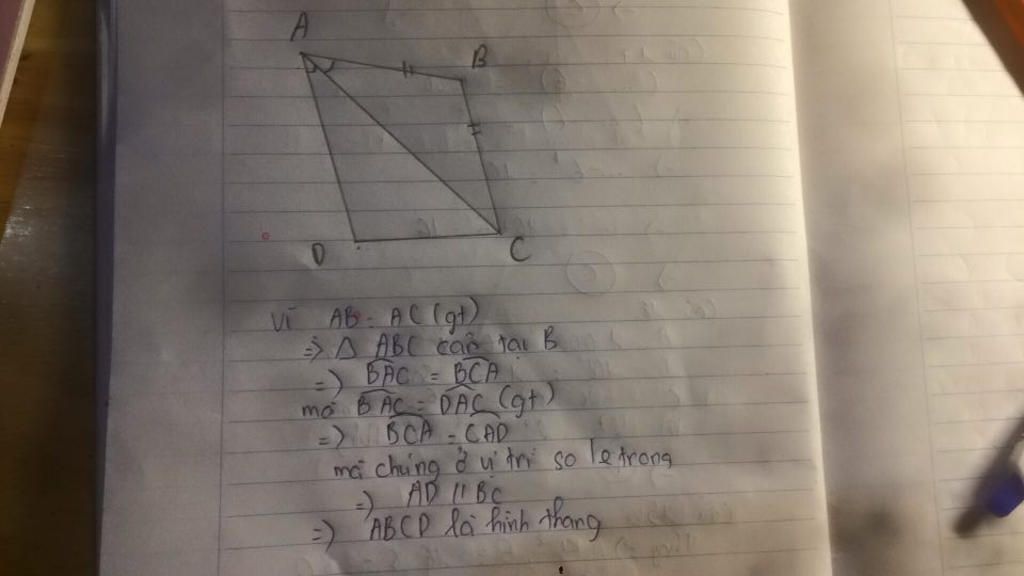 A
B
D
C
Vì AB = AC (gt)
=> Δ ABC cân tại B
=> BAC = BCA
mà BAC = DAC (gt)
=> BCA = CAD
mà chúng ở vị trí so le trong
=> AD // BC
=> ABCD là hình thang